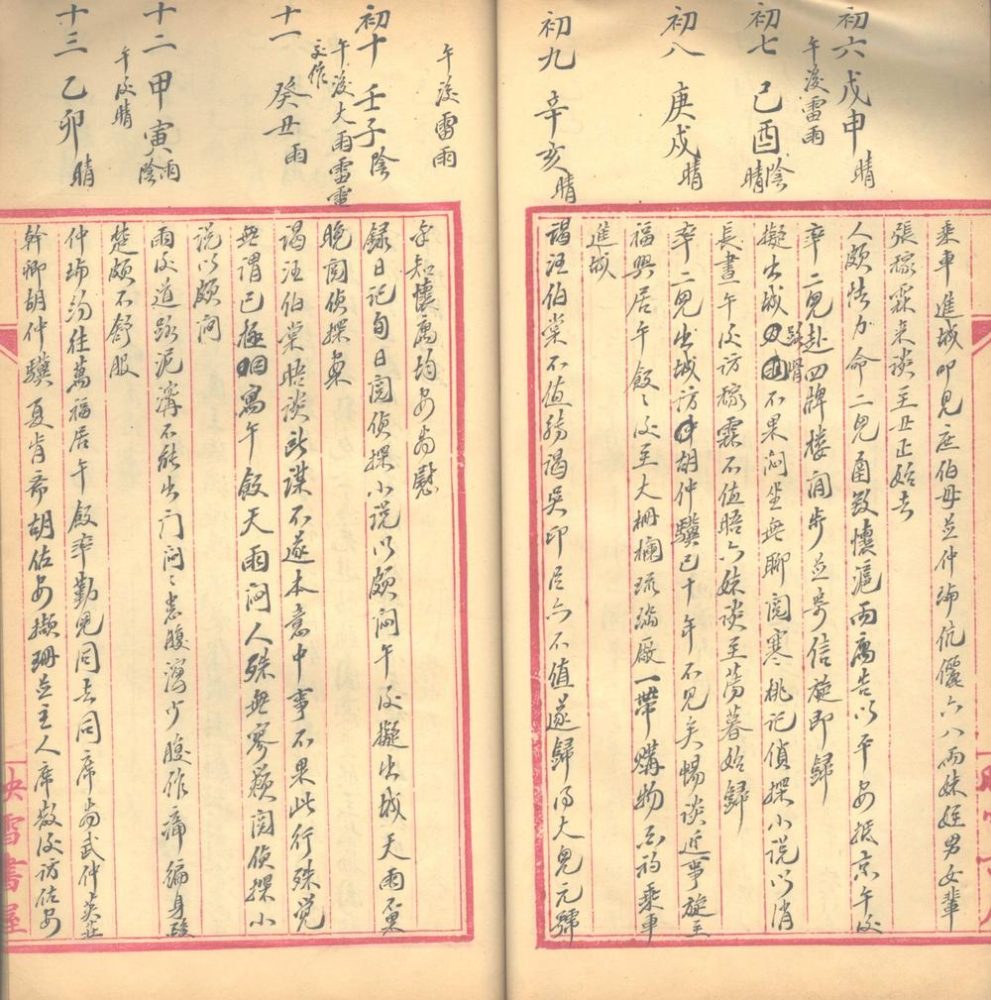 初六 戊申 晴
午後雷雨
乘車進城叩見庶伯母並仲瑜伉儷六八兩妹姪男女輩
張稼霖來談至丑正始去
人頗惓力命二兒函致懷滬兩寓告以平安抵京午後
率二兒赴四牌樓閒步並寄信旋即歸
初七 己酉 陰晴
擬出城 路滑 不果悶坐無聊閱寒桃記偵探小說以消
長晝午後訪稼霖不值晤六妹談至薄暮始歸
初八 庚戌 晴
率二兒出城訪胡仲驥已十年不見矣暢談近事旋至
福興居午飯〻後至大柵欄琉璃廠一帶購物酉初乘車
進城
初九 辛亥 晴
謁汪伯棠不值歸謁吳印臣亦不值遂歸得大兒元號
午後雷雨
手知懷寓均安為慰
初十 壬子 陰
午後大雨雷電
交作
錄日記旬日閱偵探小說以頗悶午後擬出城天雨不果
晚閱偵探案
十一 癸丑 雨
謁汪伯棠晤談此謀不遂本意中事不果此行殊覺
無謂已極回寓午飯天雨悶人殊無寥賴閱偵探小
說以頗悶
十二 甲寅 雨陰
午後晴
雨後道路泥濘不能出門悶〻患腹瀉少腹作痛編身酸
楚頗不舒服
十三 乙卯 晴
仲瑜約往萬福居午飯率勤兒同去同席為武仲英
幹卿胡仲驥夏肯希胡佐安擷珊並主人席散後訪佐安
映雪書屋